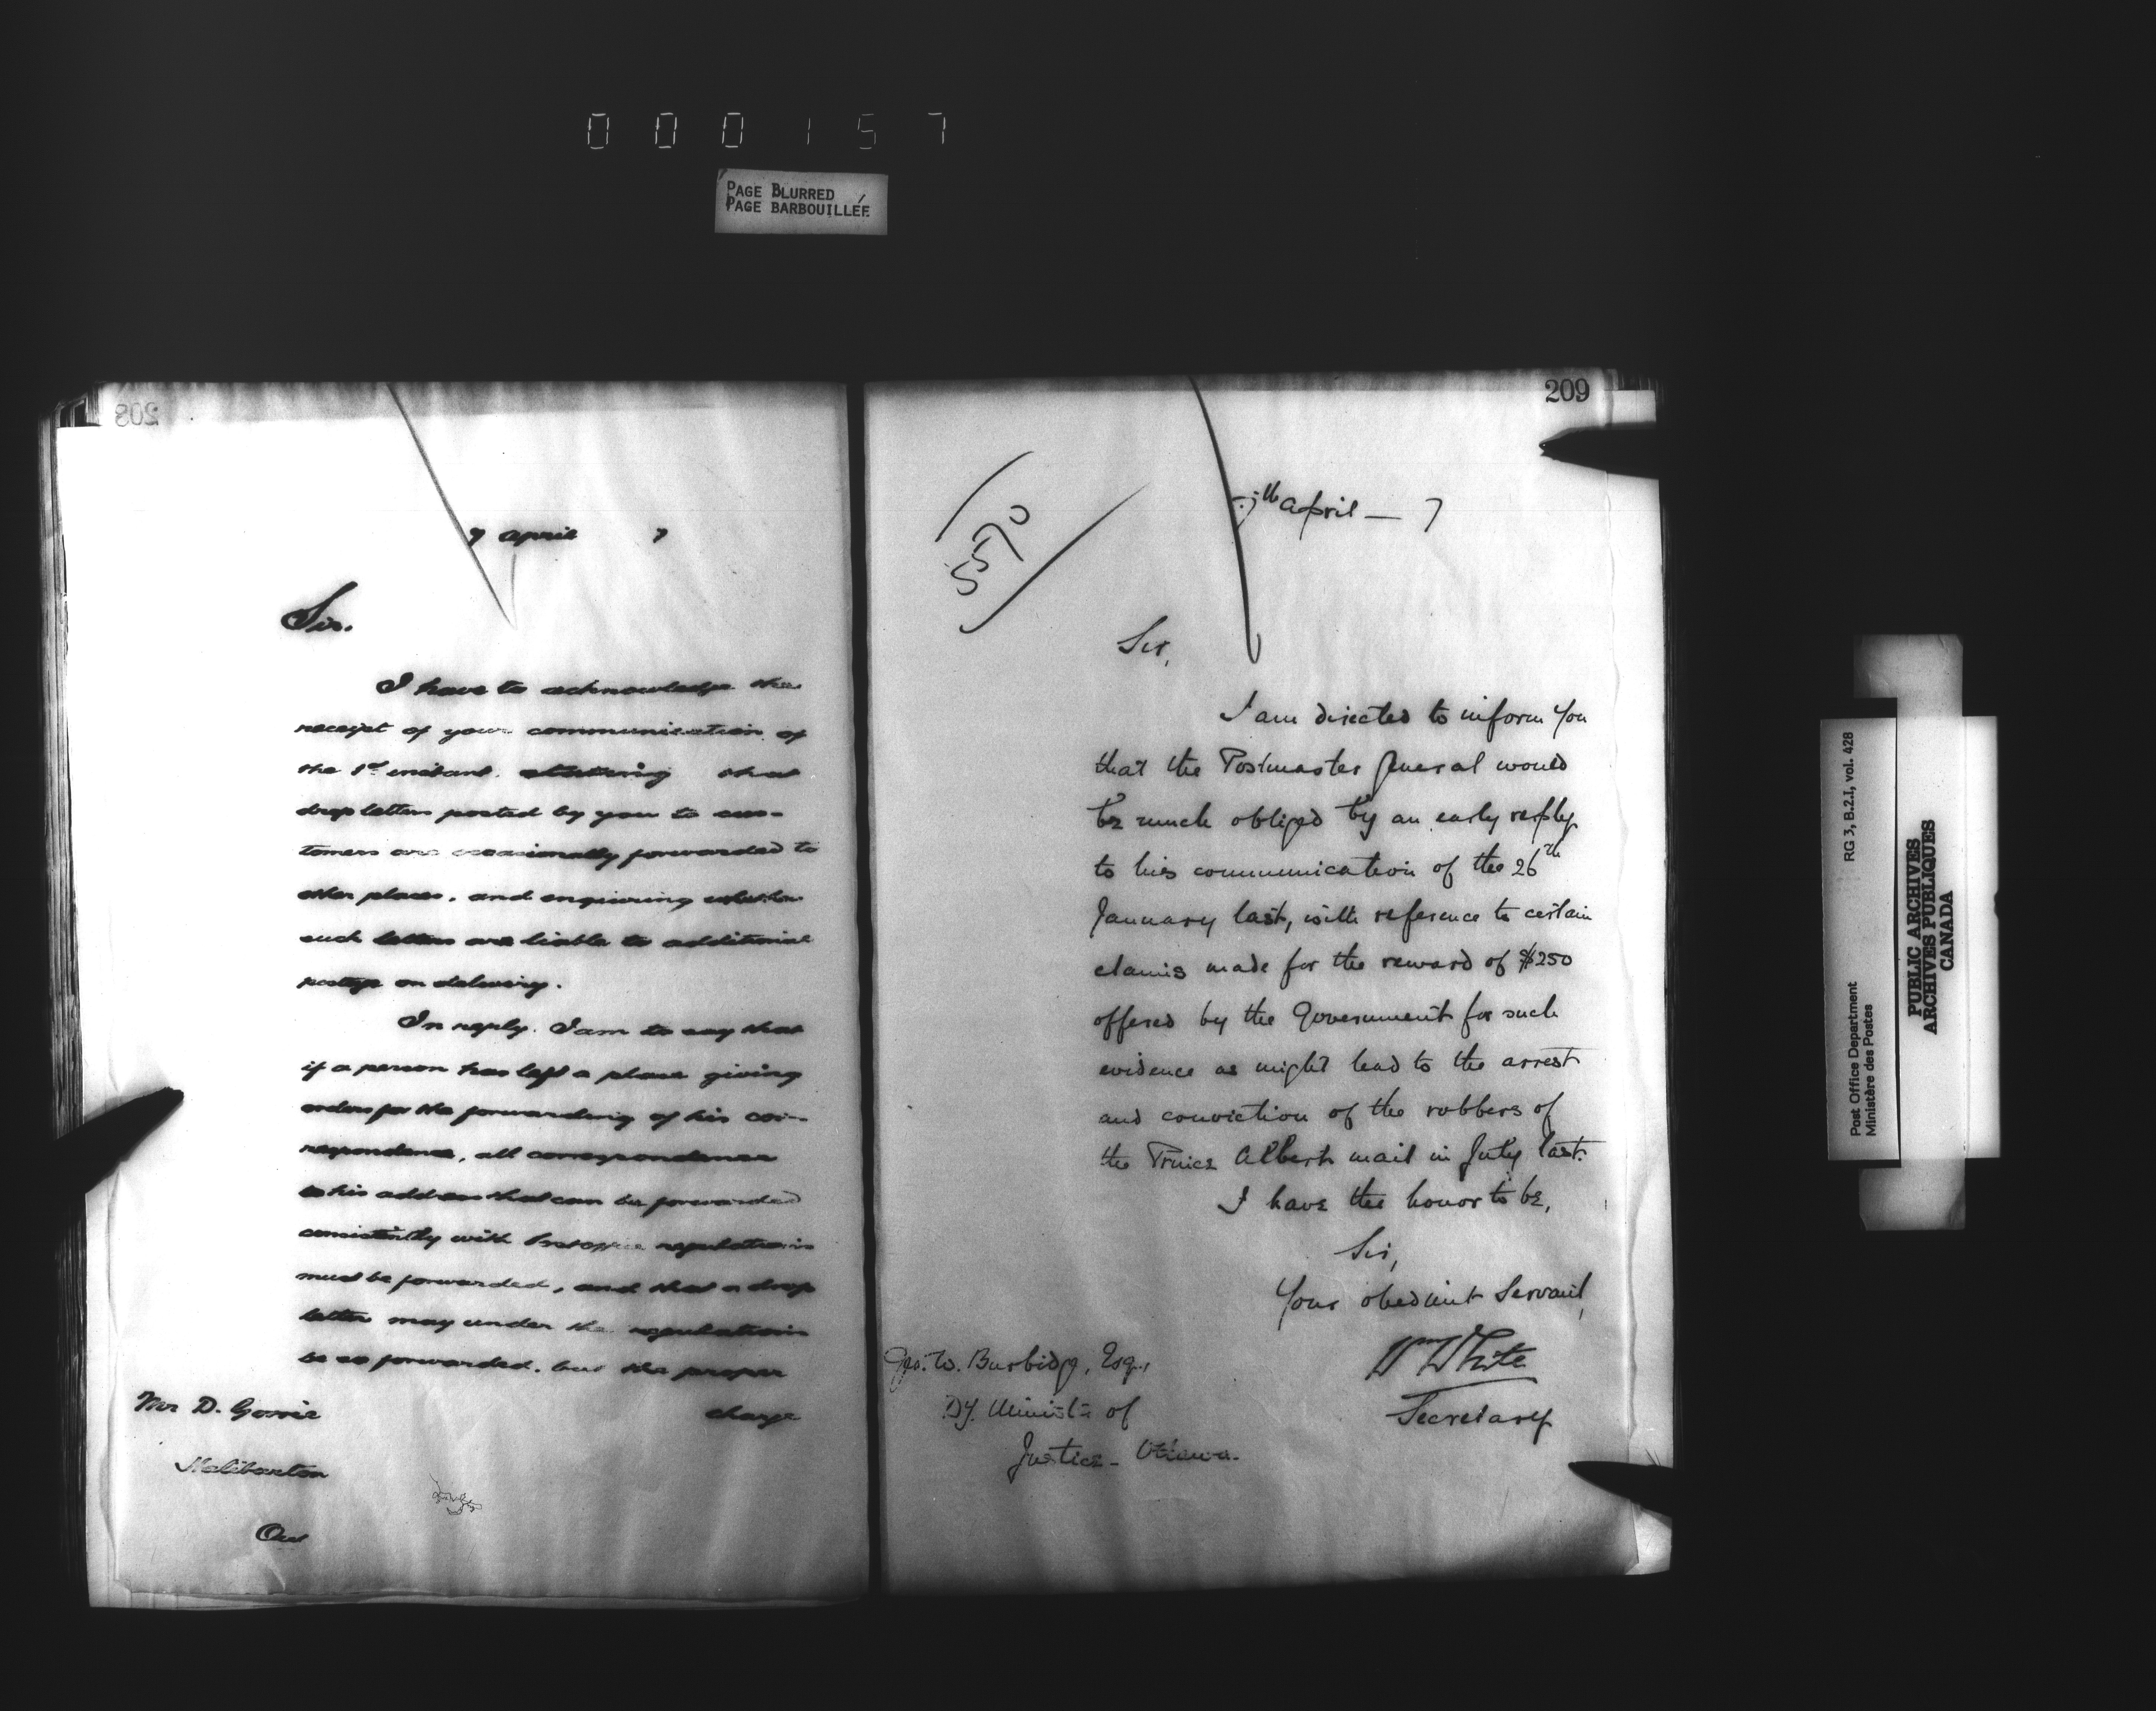 000157
PAGE BLURRED
PAGE BARBOUILLÉE
208
7 April 7
Sir.
I have to acknowledge the
receipt of your communication of
the 1st instant. that
drop letters posted by you to cus-
tomers are occasionally forwarded to
other places, and enquiring whether
such letters are liable to additional
postage on delivery.
In reply. I am to say that
if a person has left a place giving
orders for the forwarding of his cor-
respondence, all correspondence
to his address that can be forwarded
consistently with Post office regulations
must be forwarded, and that a drop
letter may under the regulations
be so forwarded. but the proper
charge
Mr D.
Haliburton
Ont
209
5570
7th April — 7
Sir,
I am directed to inform you
that the Postmaster General would
be much obliged by an early reply
to his communication of the 26th
January last, with reference to certain
claims made for the reward of $250
offered by the Government for such
evidence as might lead to the arrest
and conviction of the robbers of
the Prince Albert mail in July last.
I have the honor to be,
Sir,
Your obedient Servant,
Wm White
Secretary
Geo. W. Burbidge, Esq.,
Dy. Minister of
Justice - Ottawa.
Post Office Department RG 3, B.2.I, vol. 428
Ministère des Postes
PUBLIC ARCHIVES
ARCHIVES PUBLIQUES
CANADA